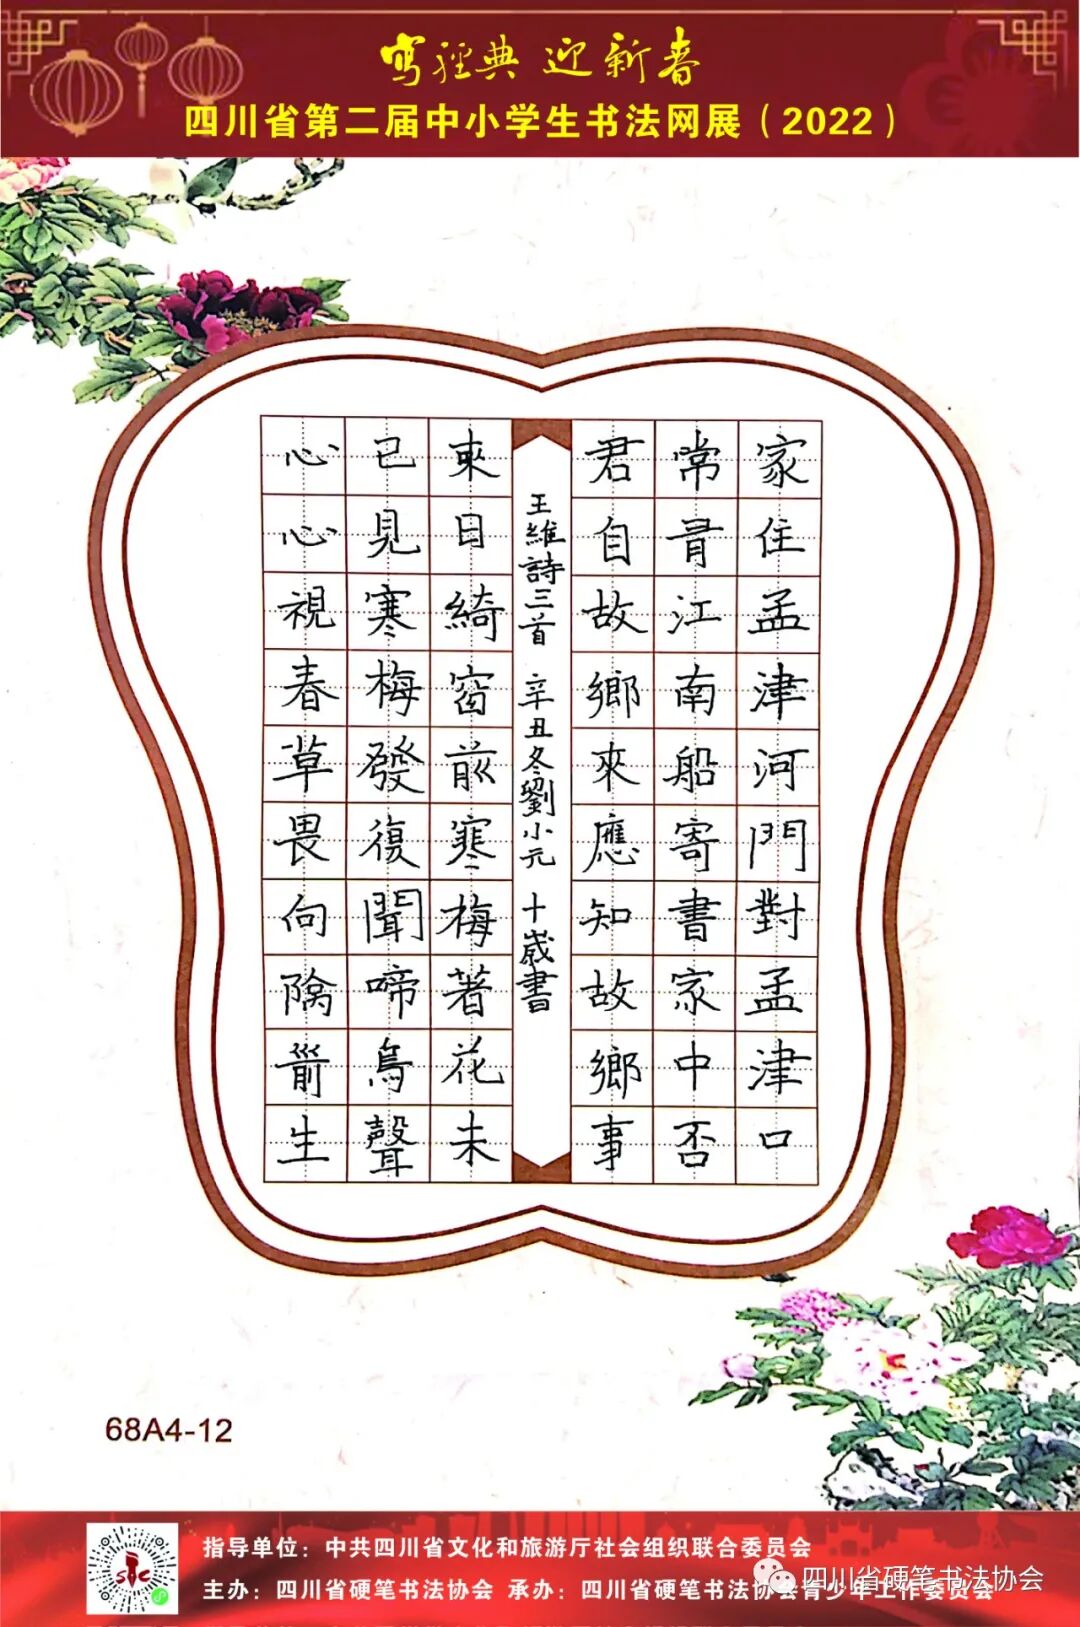 寫經典 迎新春
四川省第二届中小学生书法网展（2022）
家住孟津河門對孟津口
常有江南船寄書家中否
君自故鄉來應知故鄉事
王維詩三首 辛丑冬劉小元 十歲書
來日綺窗前寒梅著花未
已見寒梅發復聞啼鳥聲
心心視春草畏向階前生
68A4-12
指导单位：中共四川省文化和旅游厅社会组织联合委员会
主办：四川省硬笔书法协会 承办：四川省硬笔书法协会青少年工作委员会
四川省硬笔书法协会